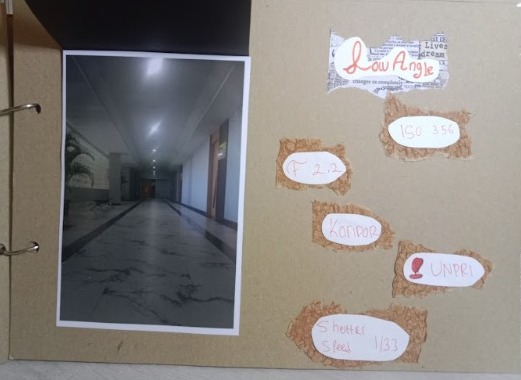 Low Angle
Lives
dream
changes as completely
ISO 356
F 2,2
Koridor
UNPRI
Shutter
Speed 1/33